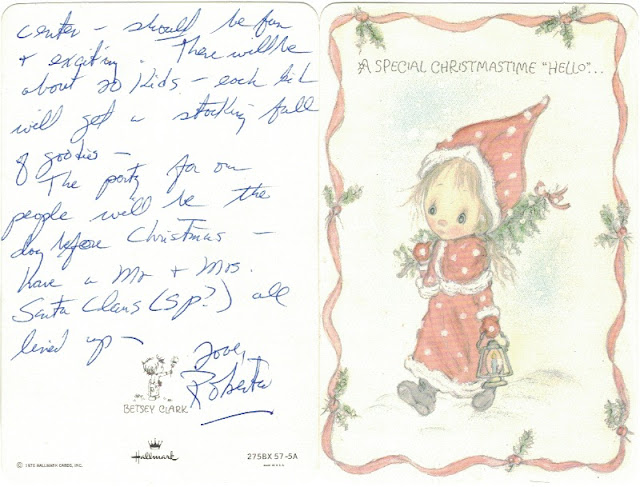 center - should be fun
& exciting. There will be
about 20 kids - each kid
will get a stocking full
of goodies -
The party for our
people will be the
day before Christmas -
have a Mr & Mrs.
Santa Claus (sp?) all
lined up -
Love,
Roberta
BETSEY CLARK
Hallmark
© 1975 HALLMARK CARDS, INC.
275BX 57-5A
MADE IN U.S.A.
A SPECIAL CHRISTMASTIME "HELLO"...